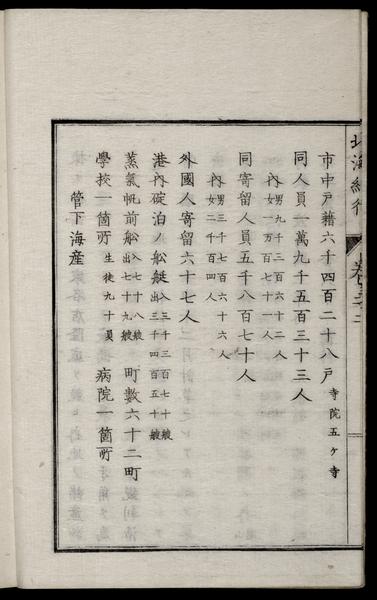 北海紀行
市中戸籍六千四百二十八戸 寺院五ケ寺
同人員一萬九千五百三十三人
內 男九千三百六十二人
女一万百七十一人
同寄留人員五千八百七十人
內 男三千七百六十六人
女二千百四人
外國人寄留六十七人
港內碇泊ノ舩艇 入三千三百七十艘
出三千四百五十艘
蒸氣帆前舩 入七十八艘
出七十九艘 町數六十二町
學挍一箇所 生徒九十員 病院一箇所
管下海産